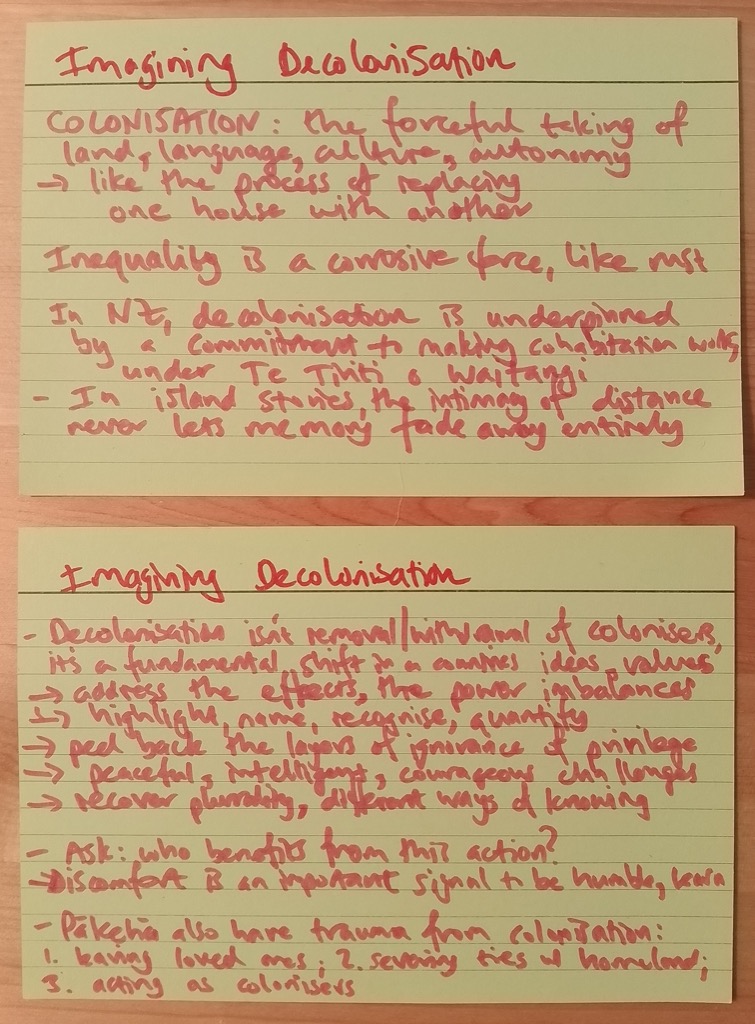 Imagining Decolonisation
COLONISATION: the forceful taking of
land, language, culture, autonomy
→ like the process of replacing
one house with another
Inequality is a corrosive force, like rust
In NZ, decolonisation is underpinned
by a commitment to making cohabitation work,
under Te Tiriti o Waitangi
- In island stories, the intimacy of distance
never lets memory fade away entirely
Imagining Decolonisation
- Decolonisation isn't removal/withdrawal of colonisers,
it's a fundamental shift in a countries ideas, values
→ address the effects, the power imbalances
→ highlight, name, recognise, quantify
→ peel back the layers of ignorance of privilege
→ peaceful, intelligent, courageous challenges
→ recover plurality, different ways of knowing
- Ask: who benefits from this action?
- Discomfort is an important signal to be humble, learn
- Pākehā also have trauma from colonisation:
1. leaving loved ones; 2. severing ties w homeland;
3. acting as colonisers